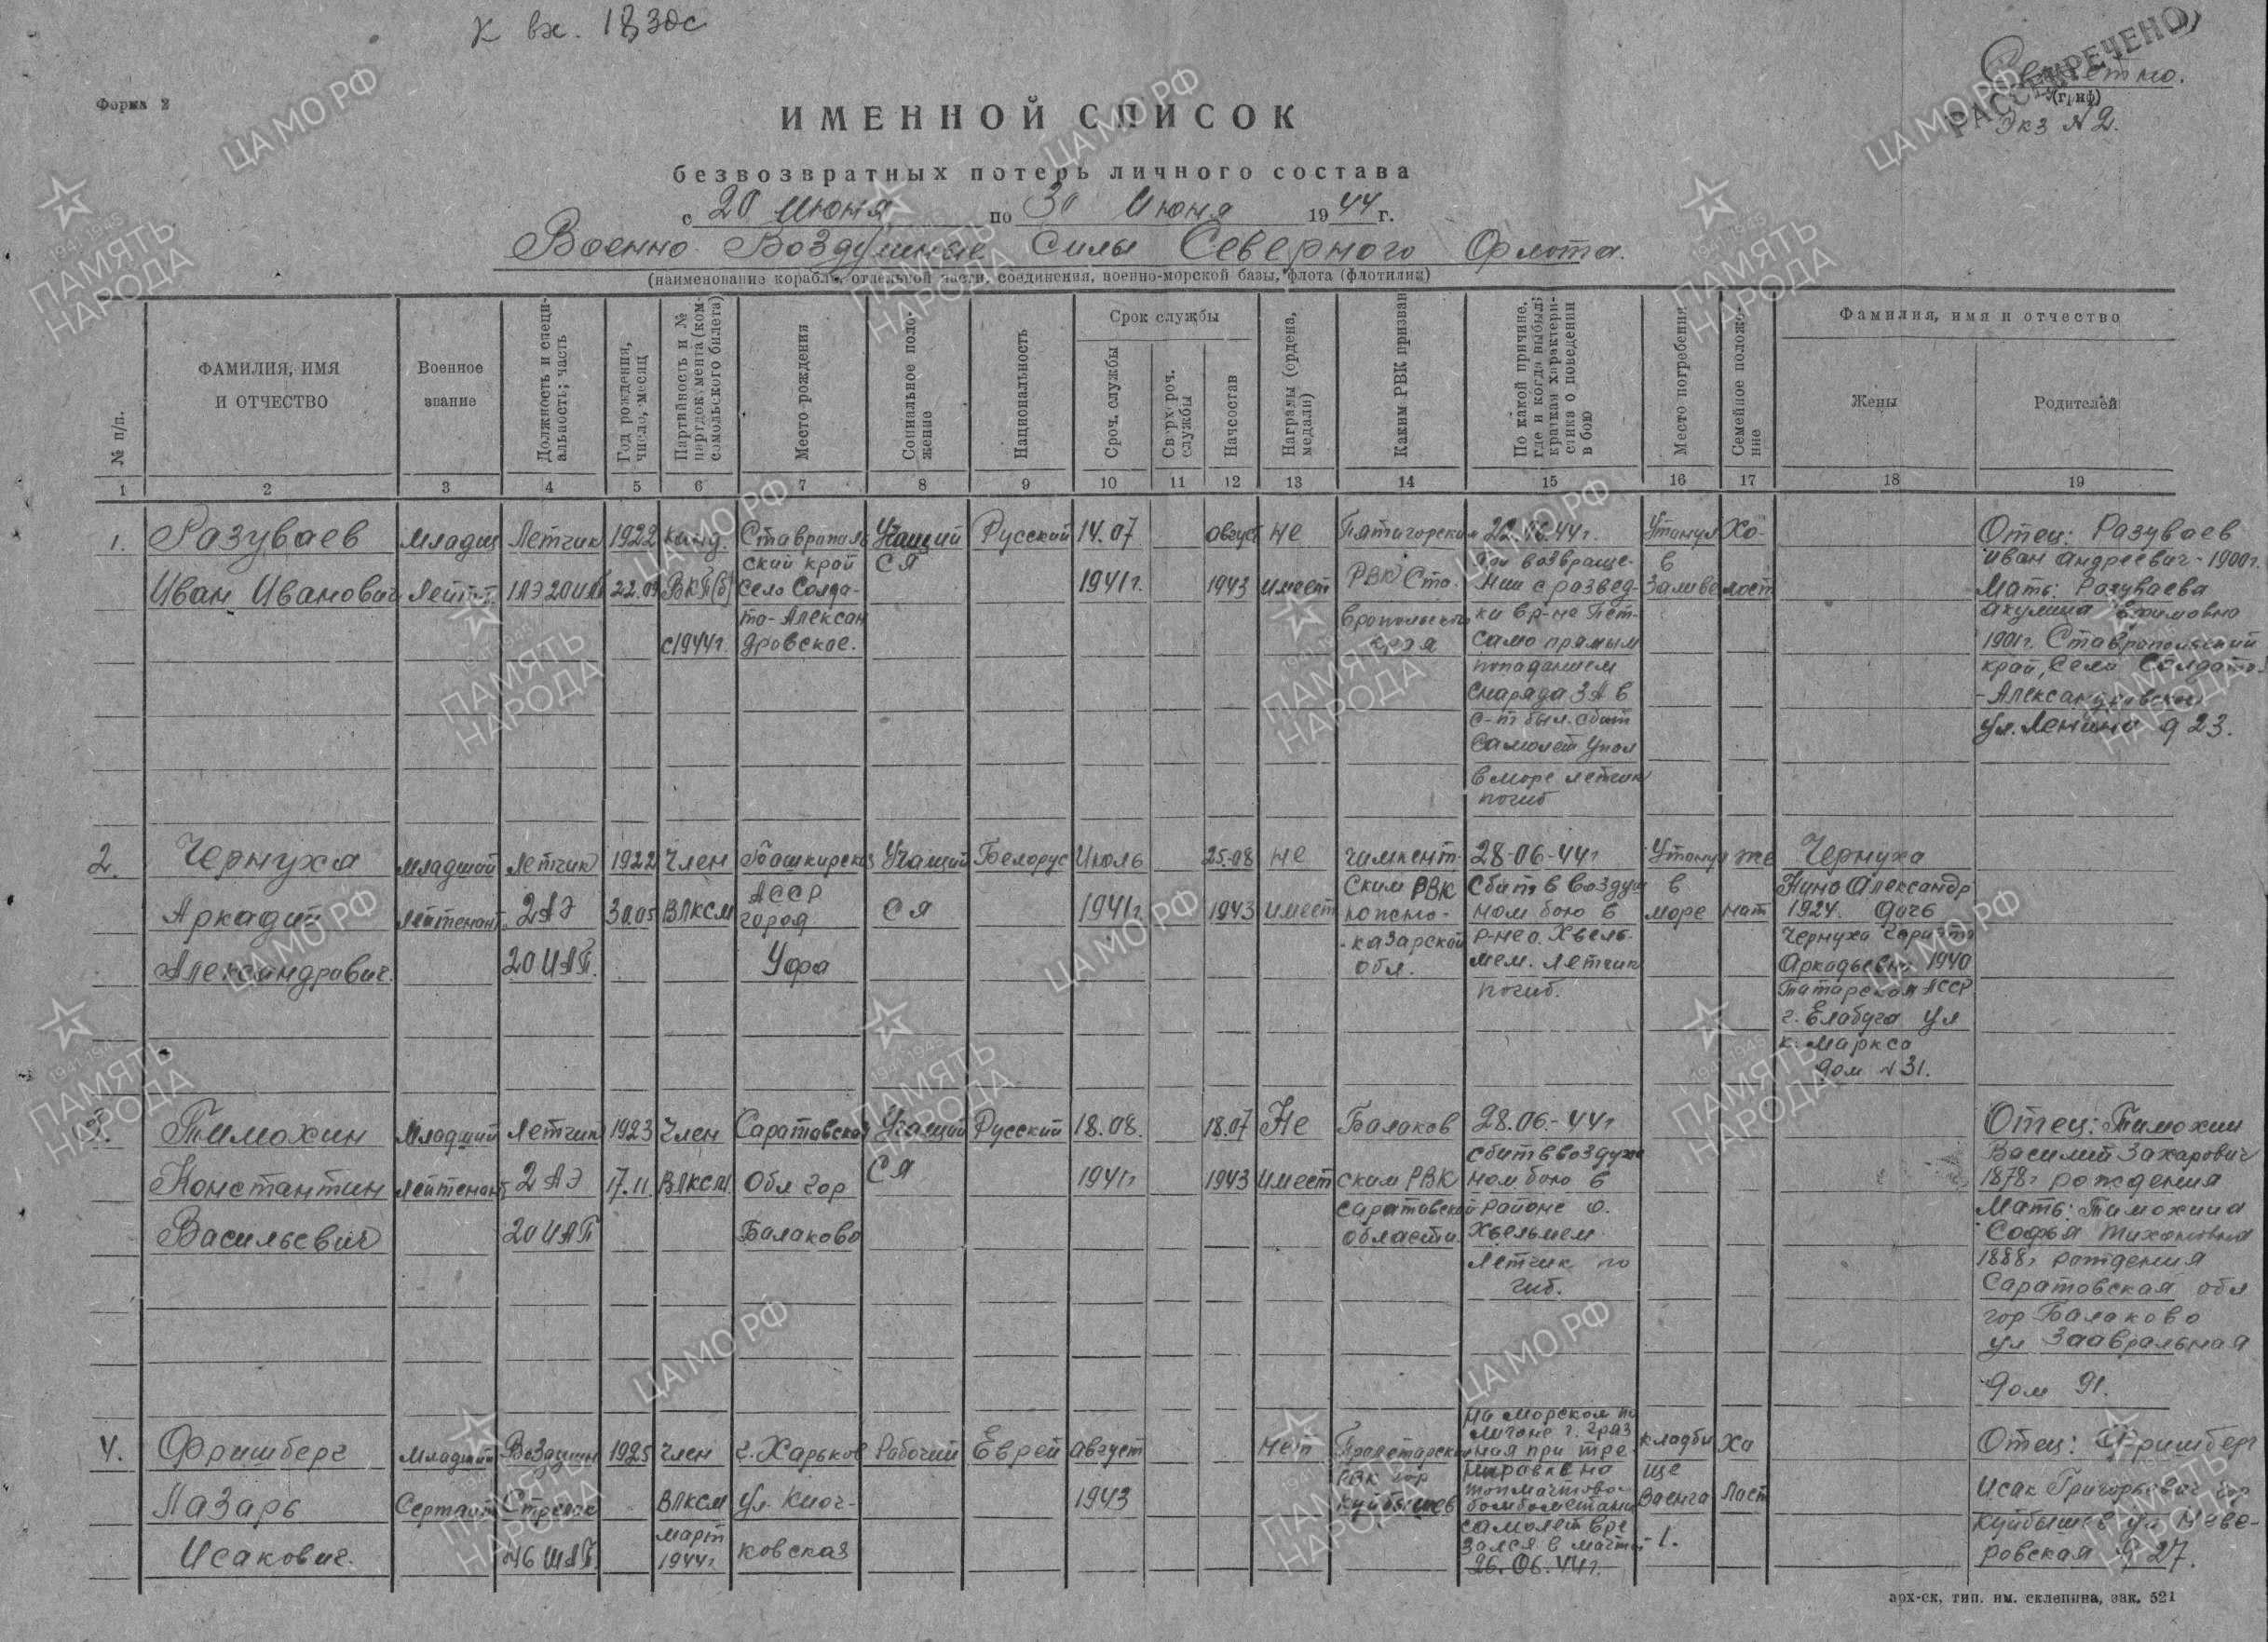 К вх. 1830с
Форма 2
Секретно.
РАССЕКРЕЧЕНО
(гриф)
Экз № 2.
ИМЕННОЙ СПИСОК
безвозвратных потерь личного состава
с 20 Июня по 30 Июня 1944 г.
Военно Воздушные Силы Северного Флота.
(наименование корабля, отдельной части, соединения, военно-морской базы, флота (флотилии)
№ п/п.
ФАМИЛИЯ, ИМЯ
И ОТЧЕСТВО
Военное
звание
Должность и специ-
альность; часть
Год рождения,
число, месяц
Партийность и №
партдокумента (ком-
сомольского билета)
Место рождения
Социальное поло-
жение
Национальность
Срок службы
Сроч. службы
Сверхсроч.
службы
Начсостав
Награды (ордена,
медали)
Каким РВК призван
По какой причине,
где и когда выбыл;
краткая характери-
стика о поведении
в бою
Место погребения
Семейное положе-
ние
Фамилия, имя и отчество
Жены
Родителей
1 2 3 4 5 6 7 8 9 10 11 12 13 14 15 16 17 18 19
1.
Разуваев
Иван Иванович
Младш
Лейт.
Летчик
1АЭ 20 ИАП
1922
22.09
канд.
ВКП(б)
с 1944г.
Ставрополь
ский край
Село Солда-
то-Алексан
дровское.
Учащий
ся
Русский
14.07
1941г.
август
1943
не
имеет
Пятигорским
РВК Ста-
вропольского
края
22.06.44г.
При возвраще-
нии с развед-
ки в р-не Пет-
само прямым
попаданием
снаряда ЗА в
с-т был сбит
Самолет упал
в море летчик
погиб
Утонул
в
Заливе
Хо-
лост
Отец: Разуваев
Иван Андреевич - 1900г.
Мать: Разуваева
Акулина Ефимовна
1901г. Ставропольский
край, Село Солдато-
-Александровское
ул. Ленина д 23.
2.
Чернуха
Аркадий
Александрович.
младший
лейтенант
летчик
2 АЭ
20 ИАП.
1922
30.05
Член
ВЛКСМ
Башкирская
АССР
город
Уфа
Учащий
ся
Белорус
Июль
1941г.
25.08
1943
не
имеет
чимкент-
ским РВК
южно-
-казахской
обл.
28-06-44г
сбит в воздуш
ном бою в
р-не о. Хьель-
мем. летчик
погиб.
Утонул
в
море
же
нат
Чернуха
Нина Александр
1924. дочь
Чернуха
Аркадьевна 1940
Татарская АССР
г. Елабуга ул
К. Маркса
дом № 31.
3.
Тимохин
Константин
Васильевич
Младший
лейтенант
летчик
2 АЭ
20 ИАП
1923
17.11
Член
ВЛКСМ
Саратовская
обл гор
Балаково
Учащий
ся
Русский
18.08.
1941г
18.07
1943
Не
имеет
Балаков
ским РВК
Саратовской
области.
28.06.-44г
сбит в воздуш
ном бою в
районе о.
Хьельмем
летчик по
гиб.
Отец: Тимохин
Василий Захарович
1878г рождения
Мать: Тимохина
Софья Тихоновна
1888г рождения
Саратовская обл
гор Балаково
ул Заовральная
дом 91.
4.
Фришберг
Лазарь
Исакович.
Младший
Сержант
Воздушн
Стрелок
46 ШАП.
1925
член
ВЛКСМ
март
1944г.
г. Харьков
ул. Клоч-
ковская
Рабочий
Еврей
август
1943
нет
Пролетарским
РВК гор
Куйбышев
на морском по
лигоне г. Гряз
ная при тре
нировке на
топмачтово-
бомбометани
самолет вре
зался в мачту
26.06.44г.
кладби
ще
Ваенга
-1.
Хо
Лост
Отец: Фришберг
Исак Григорьевич гор
Куйбышев ул
ровская д 27.
арх-ск. тип. им. склепина, зак. 521
ЦАМО РФ
1941-1945
ПАМЯТЬ
НАРОДА